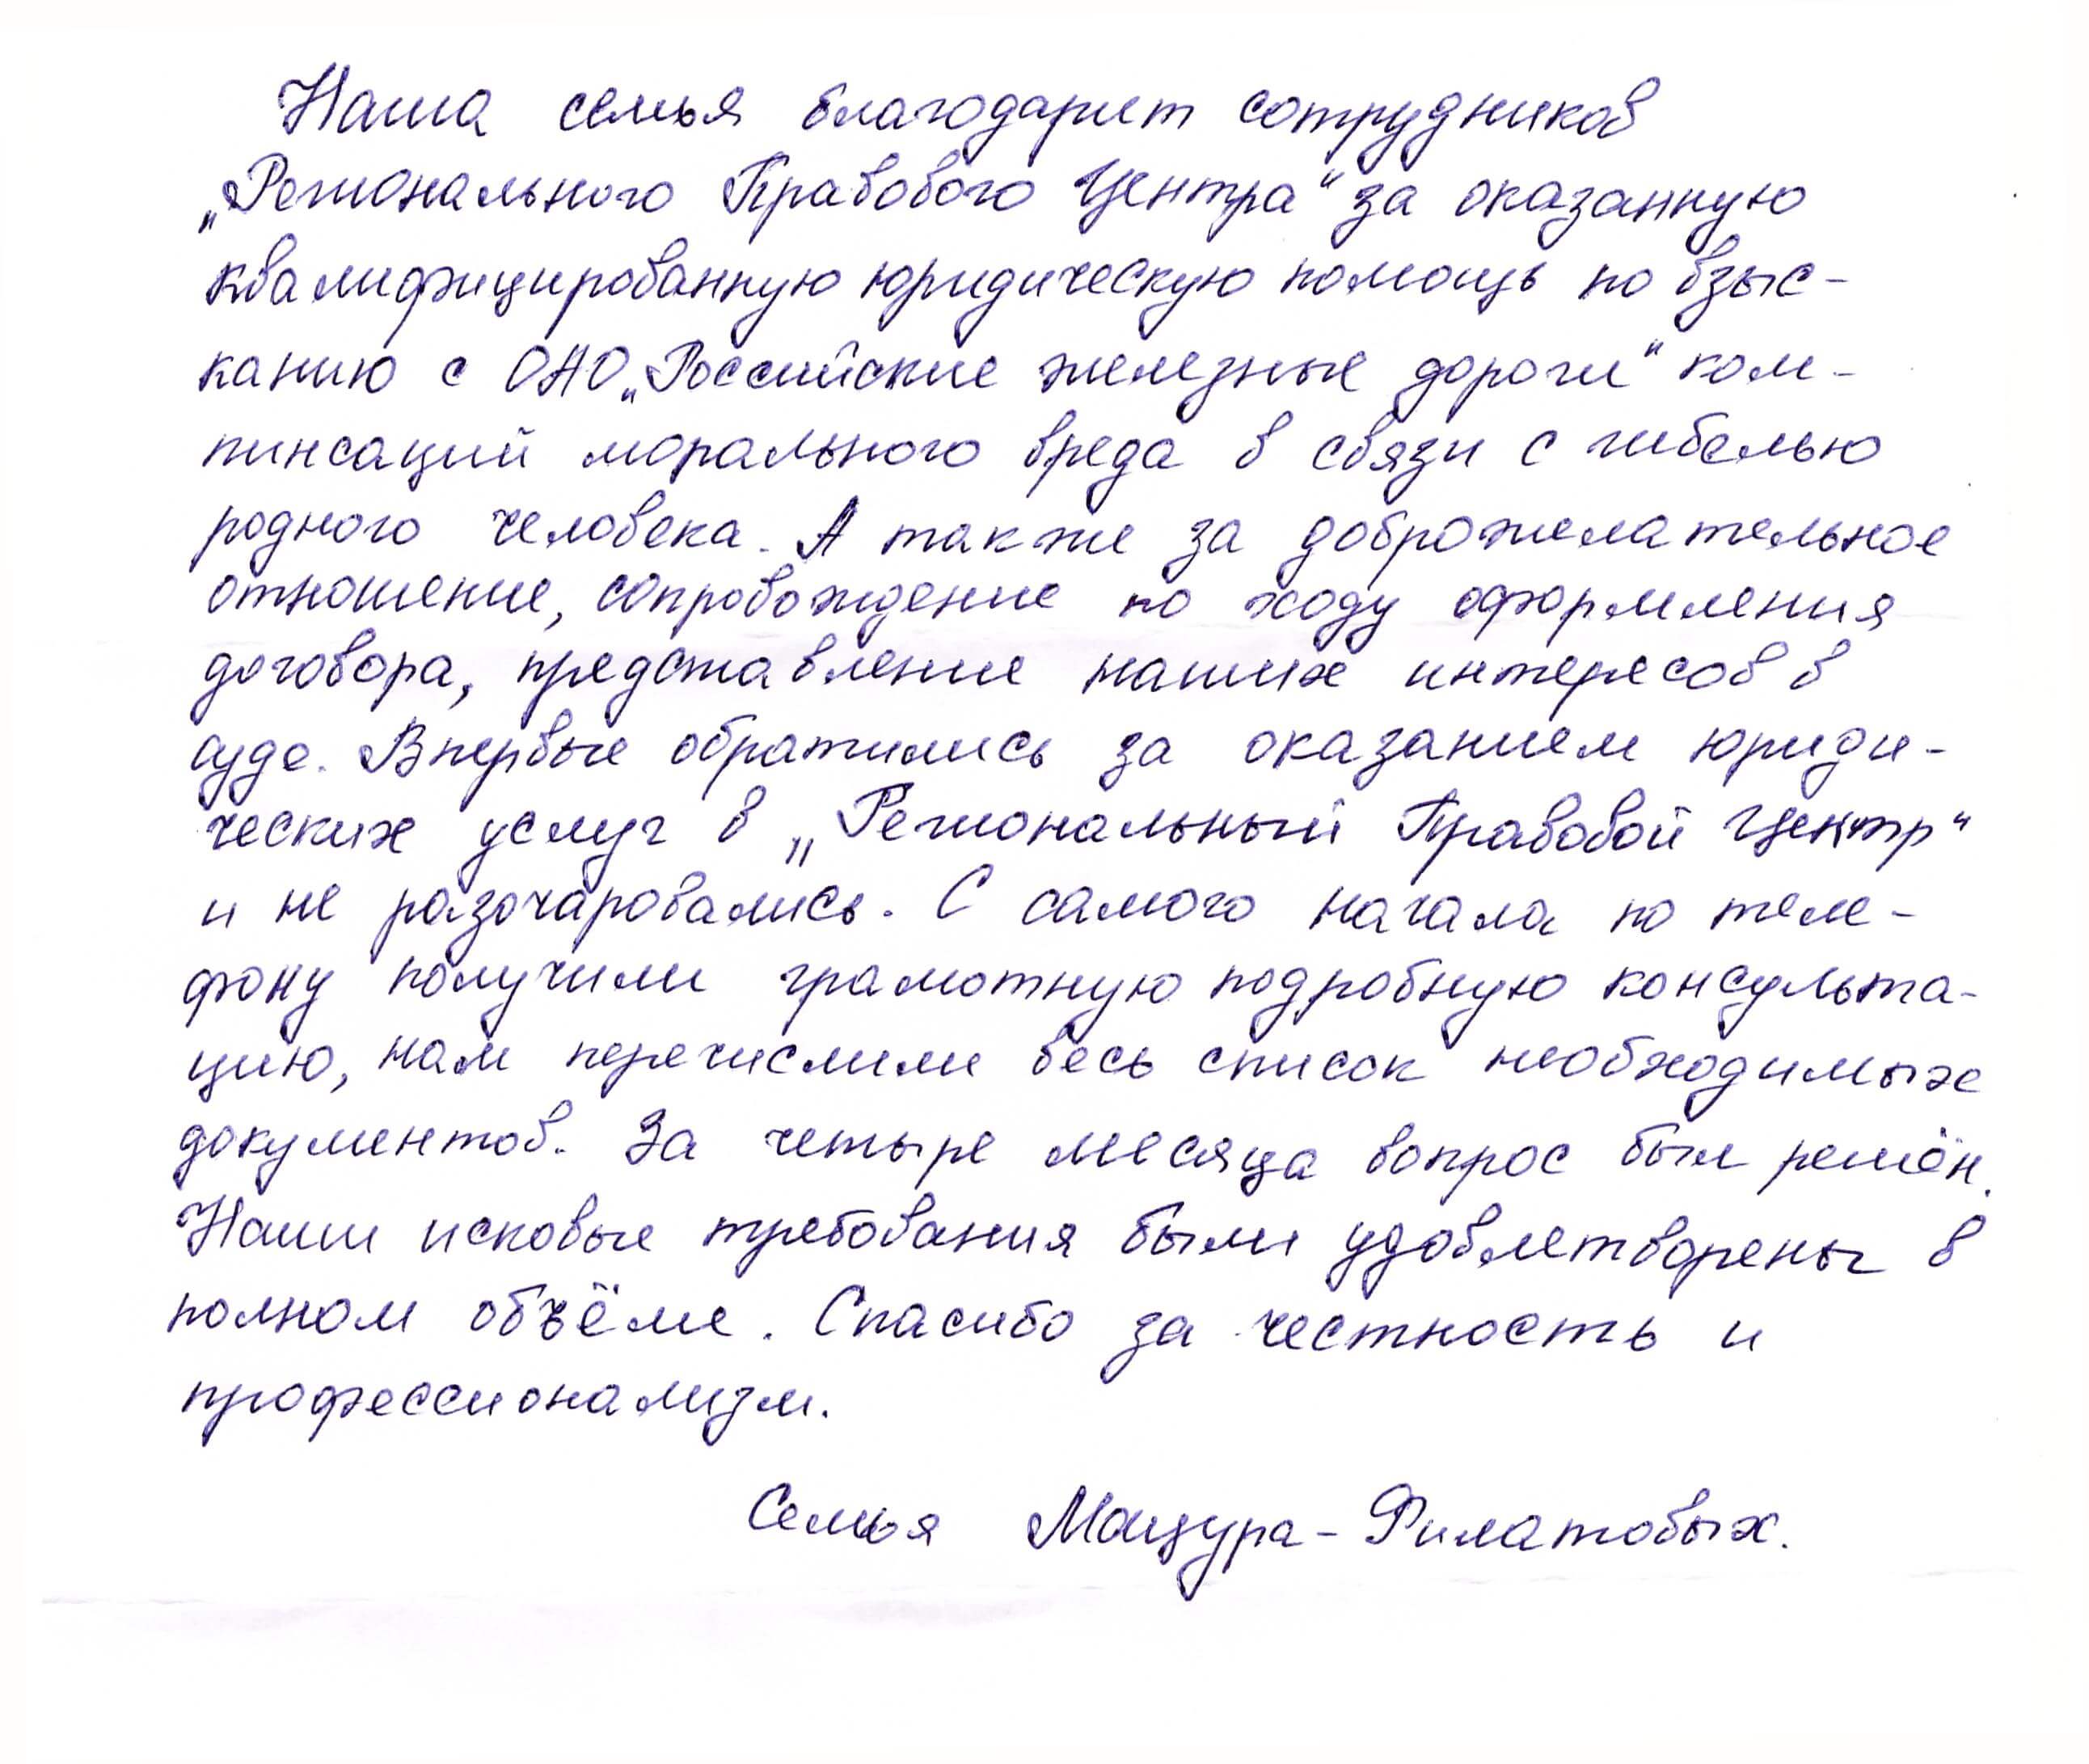 Наша семья благодарит сотрудников
„Регионального Правового Центра“ за оказанную
квалифицированную юридическую помощь по взыс-
канию с ОАО „Российские железные дороги“ ком-
пинсаций морального вреда в связи с гибелью
родного человека. А также за доброжелательное
отношение, сопровождение по ходу оформления
договора, представление наших интересов в
суде. Впервые обратились за оказанием юриди-
ческих услуг в „Региональный Правовой Центр“
и не разочаровались. С самого начала по теле-
фону получили грамотную подробную консульта-
цию, нам перечислили весь список необходимых
документов. За четыре месяца вопрос был решён.
Наши исковые требования были удовлетворены в
полном объёме. Спасибо за честность и
профессионализм.
Семья Мацура-Филатовых.